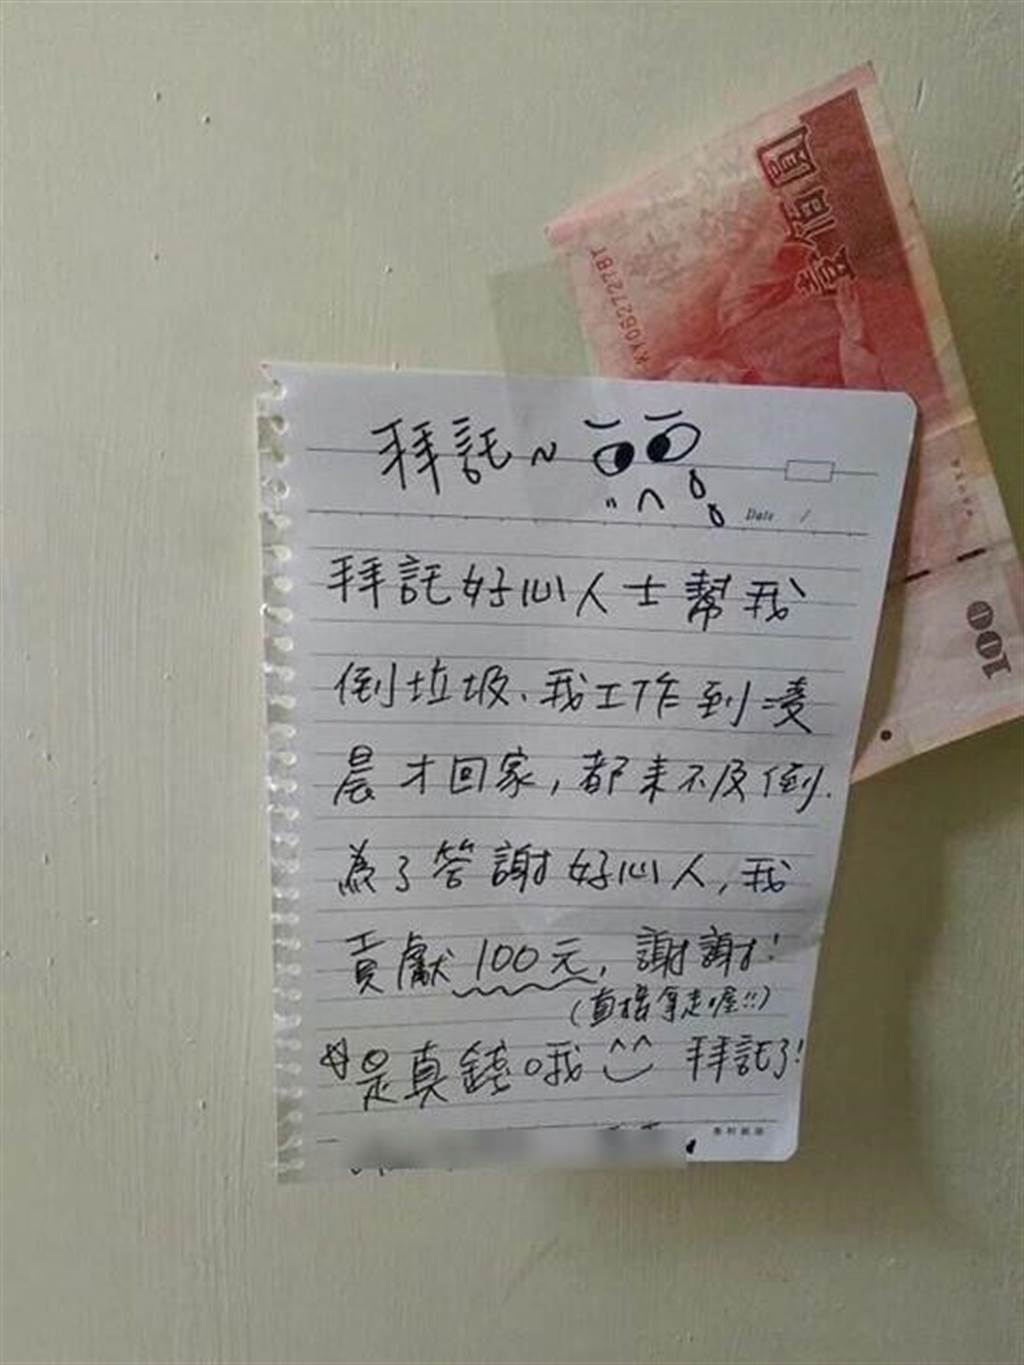 壹佰圓
KY062727BY
100
拜託~
Date /
拜託好心人士幫我
倒垃圾、我工作到凌
晨才回家,都來不及倒.
為了答謝好心人,我
貢獻100元,謝謝!
(直接拿走喔!!)
☆是真錢哦^^ 拜託了!